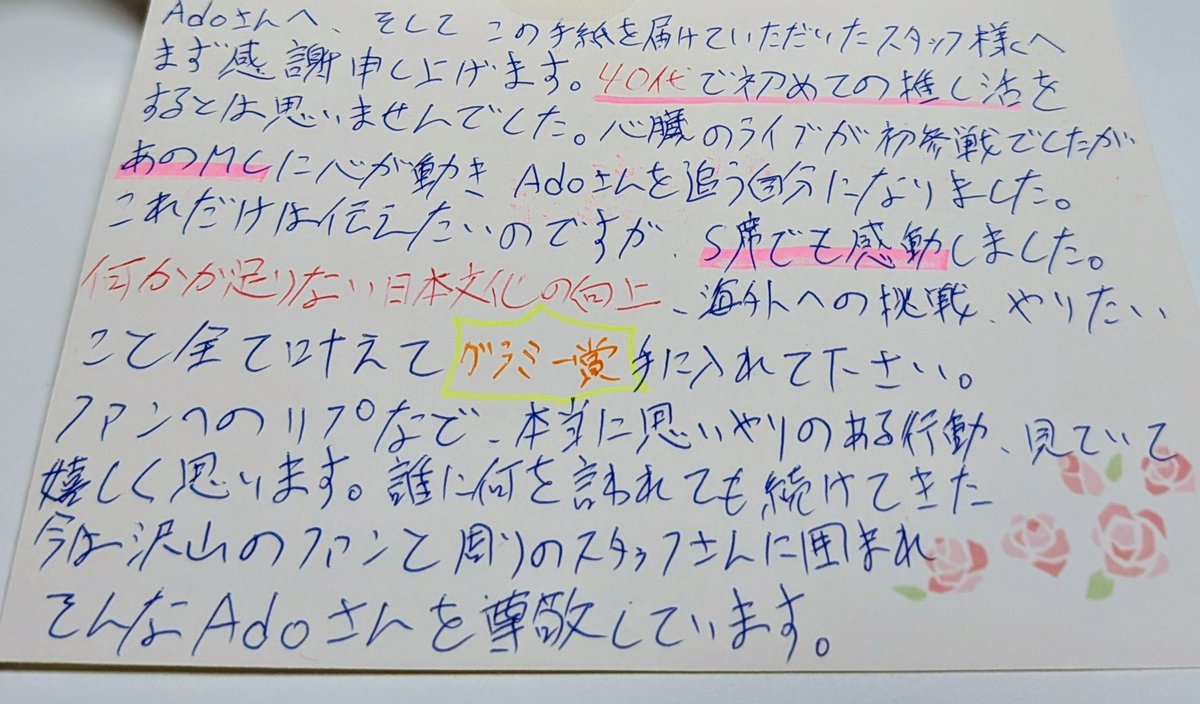 Adoさんへ、そして この手紙を届けていただいたスタッフ様へ
まず感謝申し上げます。40代で初めての推し活を
するとは思いませんでした。心臓のライブが初参戦でしたが
あのMCに心が動き Adoさんを追う自分になりました。
これだけは伝えたいのですが、S席でも感動しました。
何かが足りない日本文化の向上、海外への挑戦、やりたい
こと全て叶えて グラミー賞 手に入れて下さい。
ファンへのリプなど、本当に思いやりのある行動、見ていて
嬉しく思います。誰に何を言われても続けてきた
今は沢山のファンと周りのスタッフさんに囲まれ
そんなAdoさんを尊敬しています。